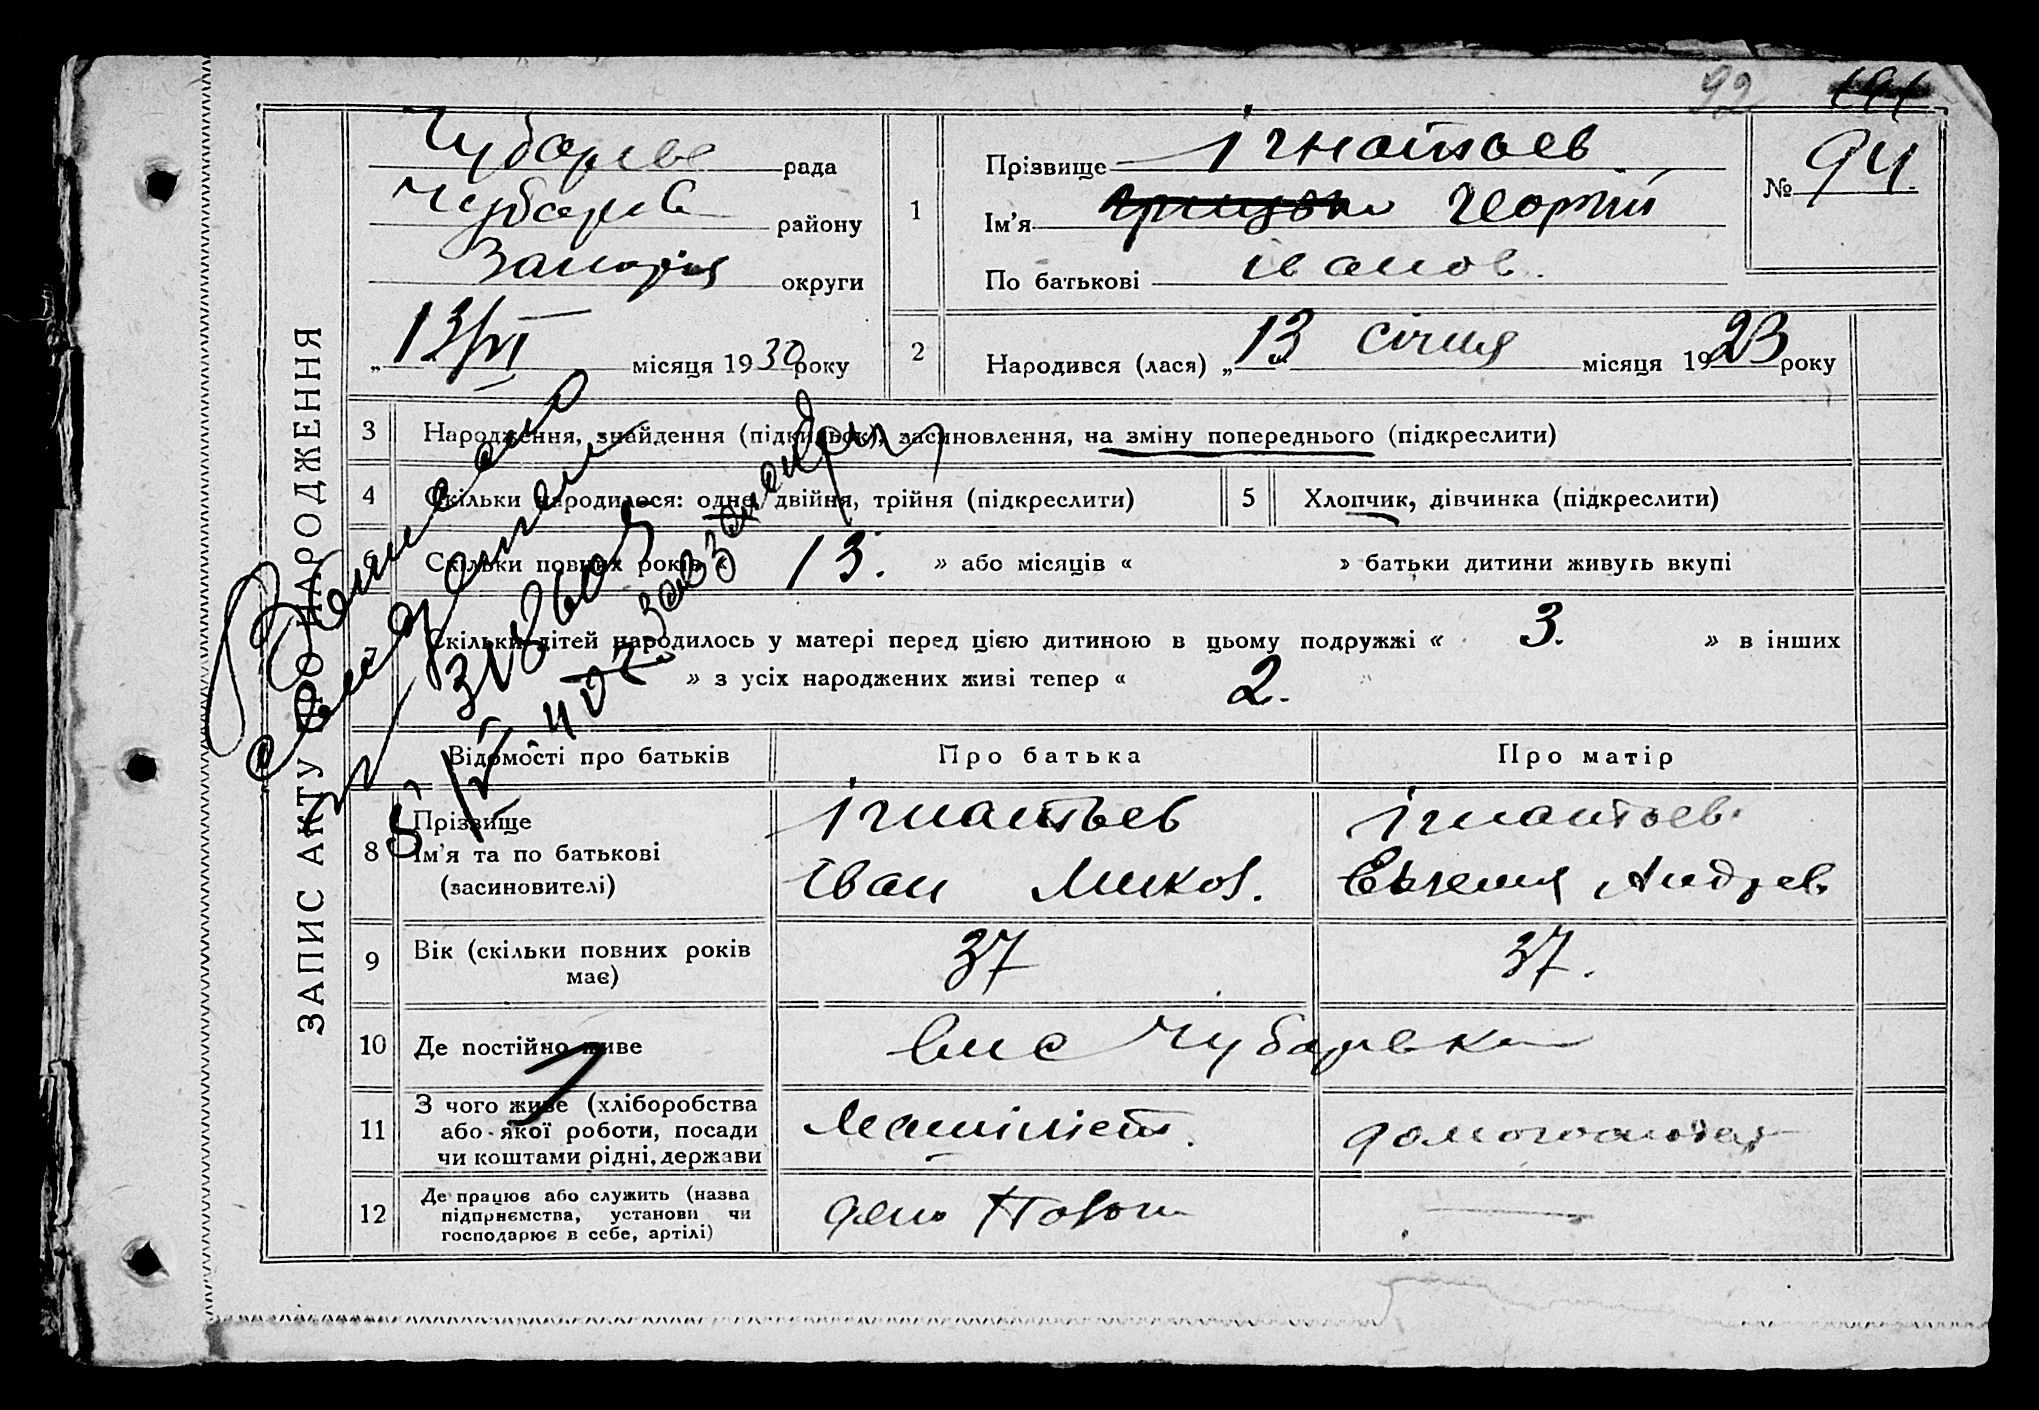 92
94
Чубарівс рада
Чубарів району
Запоріж округи
„13/VI місяця 1930 року
1
Прізвище Ігнатьев
Ім’я Георгий
По батькові Іванов.
№ 94
2
Народився (лася) „13 січня місяця 1923 року
3 Народження, знайдення (підкидьок), засиновлення, на зміну попереднього (підкреслити)
4 Скільки народилося: одне, двійня, трійня (підкреслити)
5 Хлопчик, дівчинка (підкреслити)
Скільки повних років « 13. » або місяців « » батьки дитини живуть вкупі
Скільки дітей народилось у матері перед цією дитиною в цьому подружжі « 3. » в інших
» з усіх народжених живі тепер « 2.
ЗАПИС АКТУ ПРО НАРОДЖЕННЯ
Відомості про батьків
Про батька
Про матір
8 Прізвище
Ім’я та по батькові
(засиновителі)
Ігнатьев
Іван Микол.
Ігнатьев.
Евгения Андрев.
9 Вік (скільки повних років
має)
37
37.
10 Де постійно живе
Чубаревка
11 З чого живе (хліборобства
або якої роботи, посади
чи коштами рідні, держави
Машиніст.
домогоспод
12 Де працює або служить (назва
підприємства, установи чи
господарює в себе, артілі)